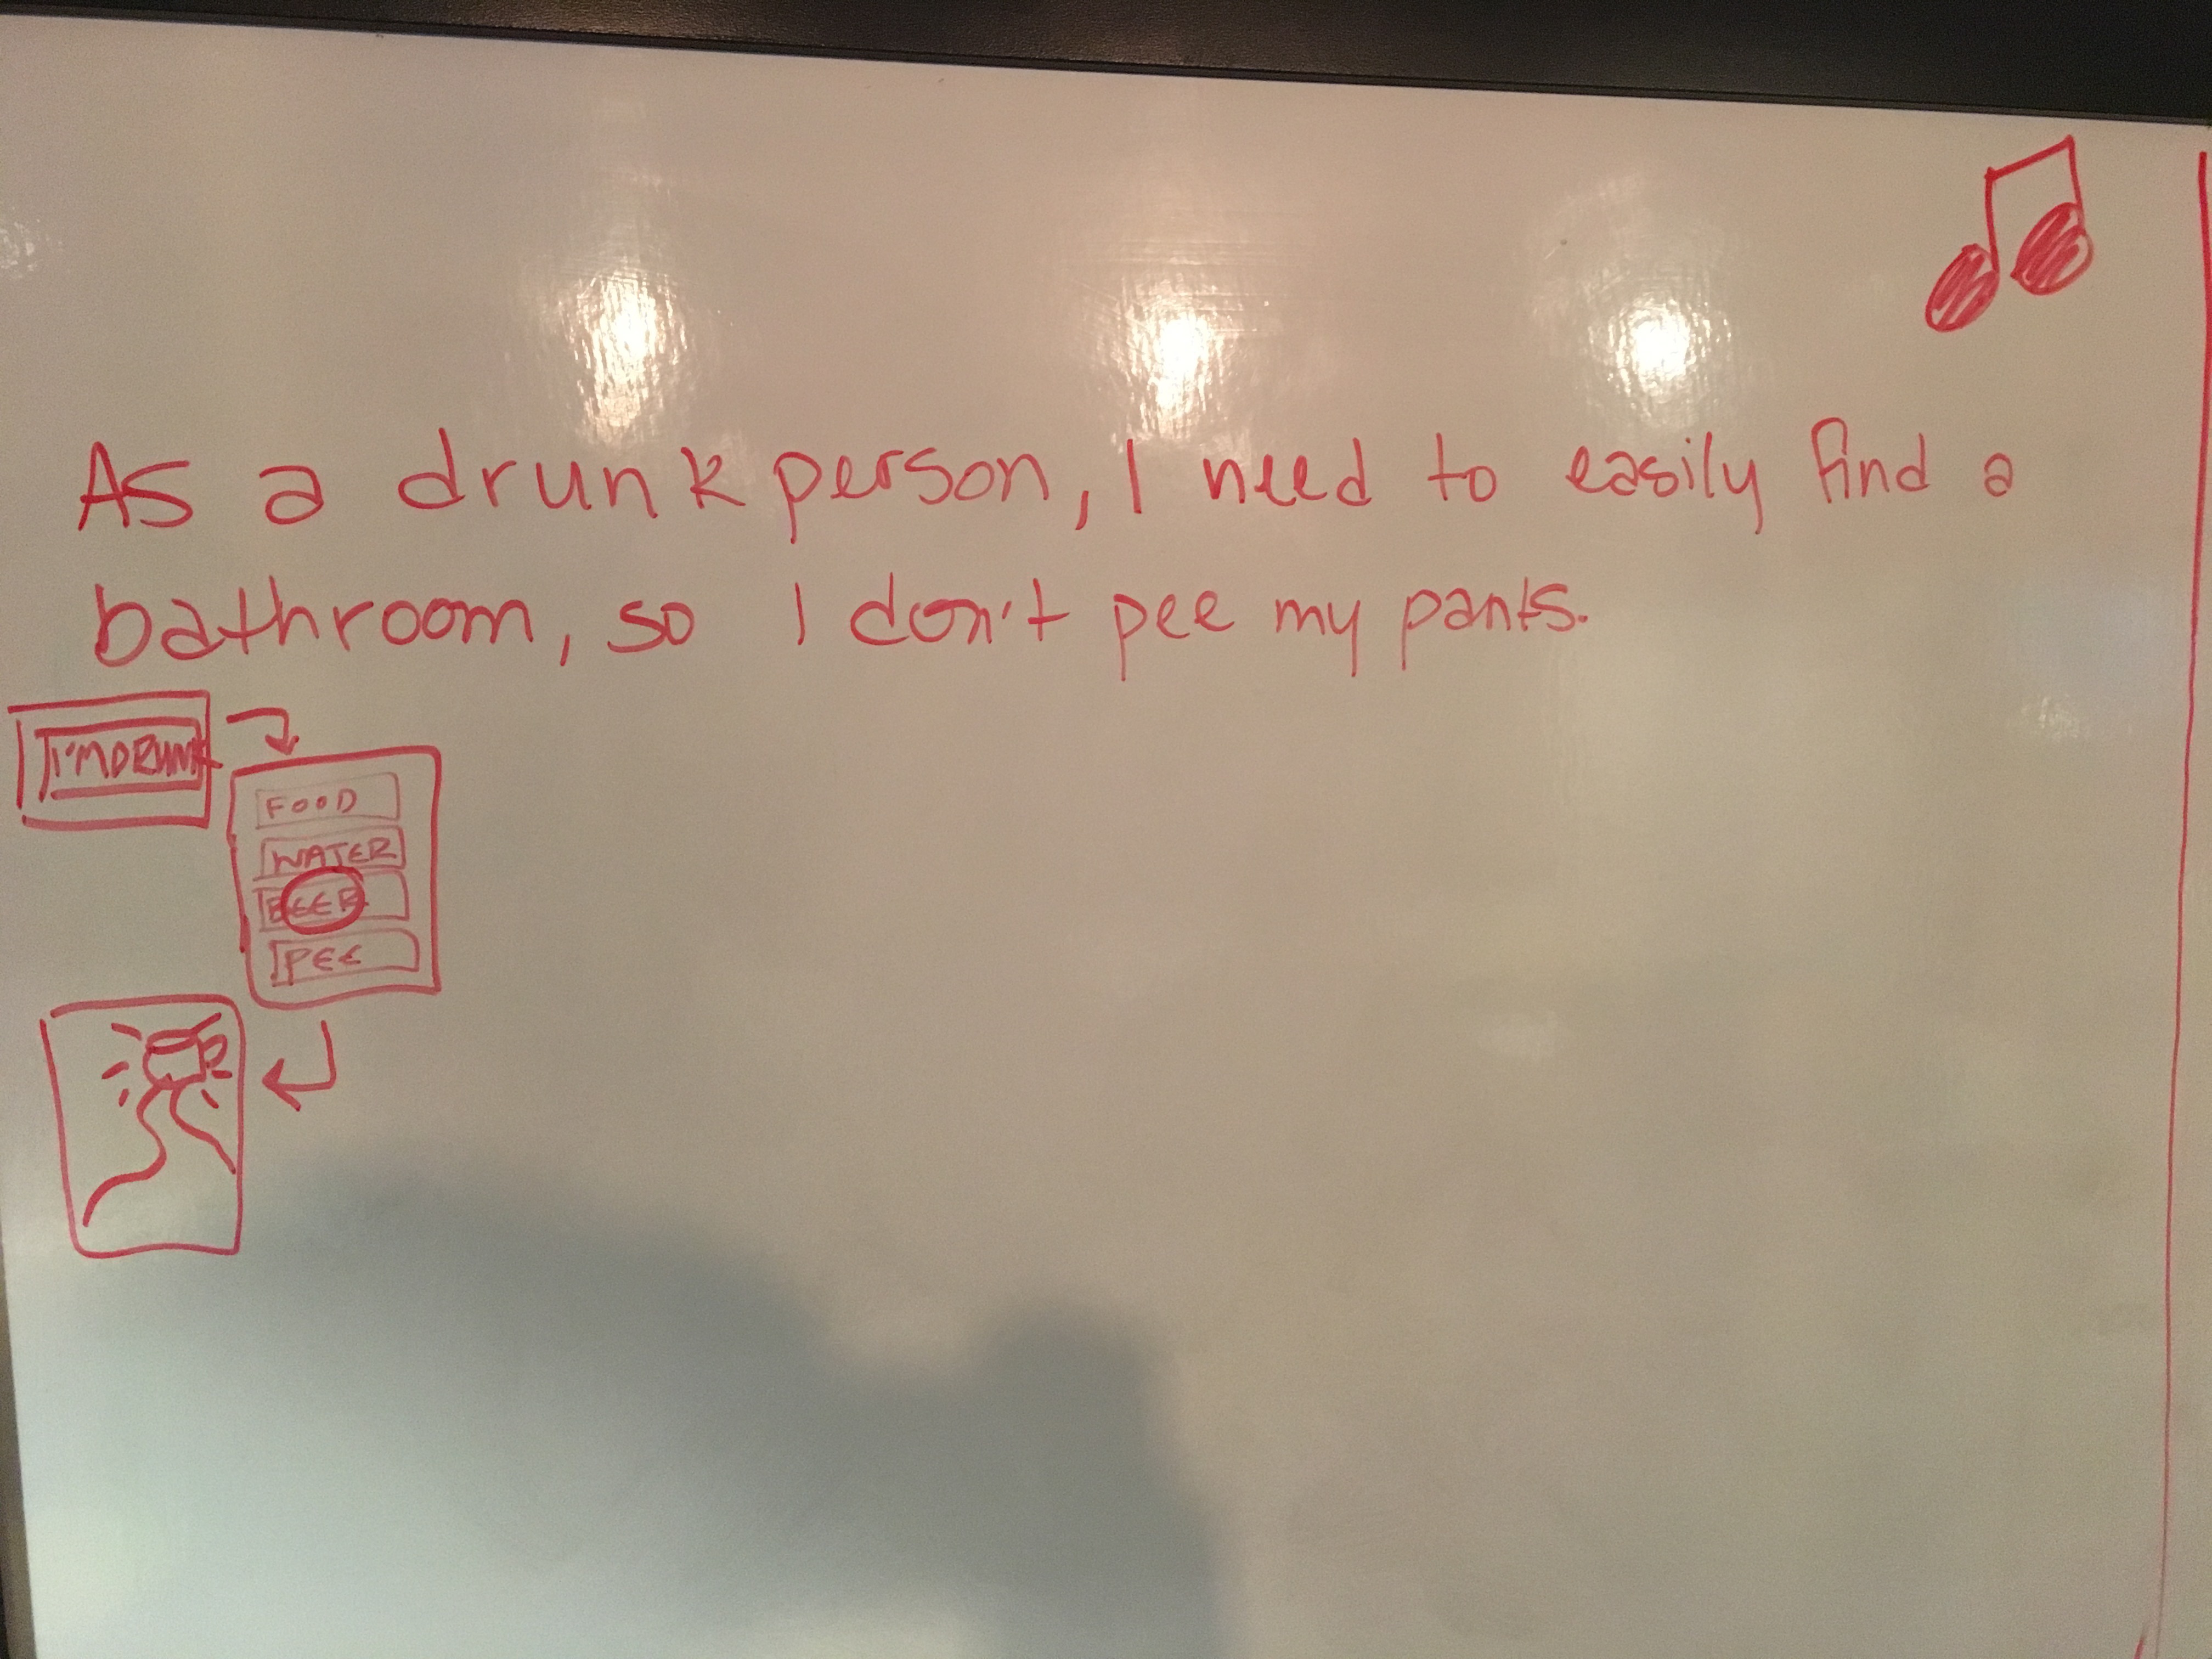 As a drunk person, I need to easily find a
bathroom, so I don't pee my pants.
I'M DRUNK
FOOD
WATER
BEER
PEE